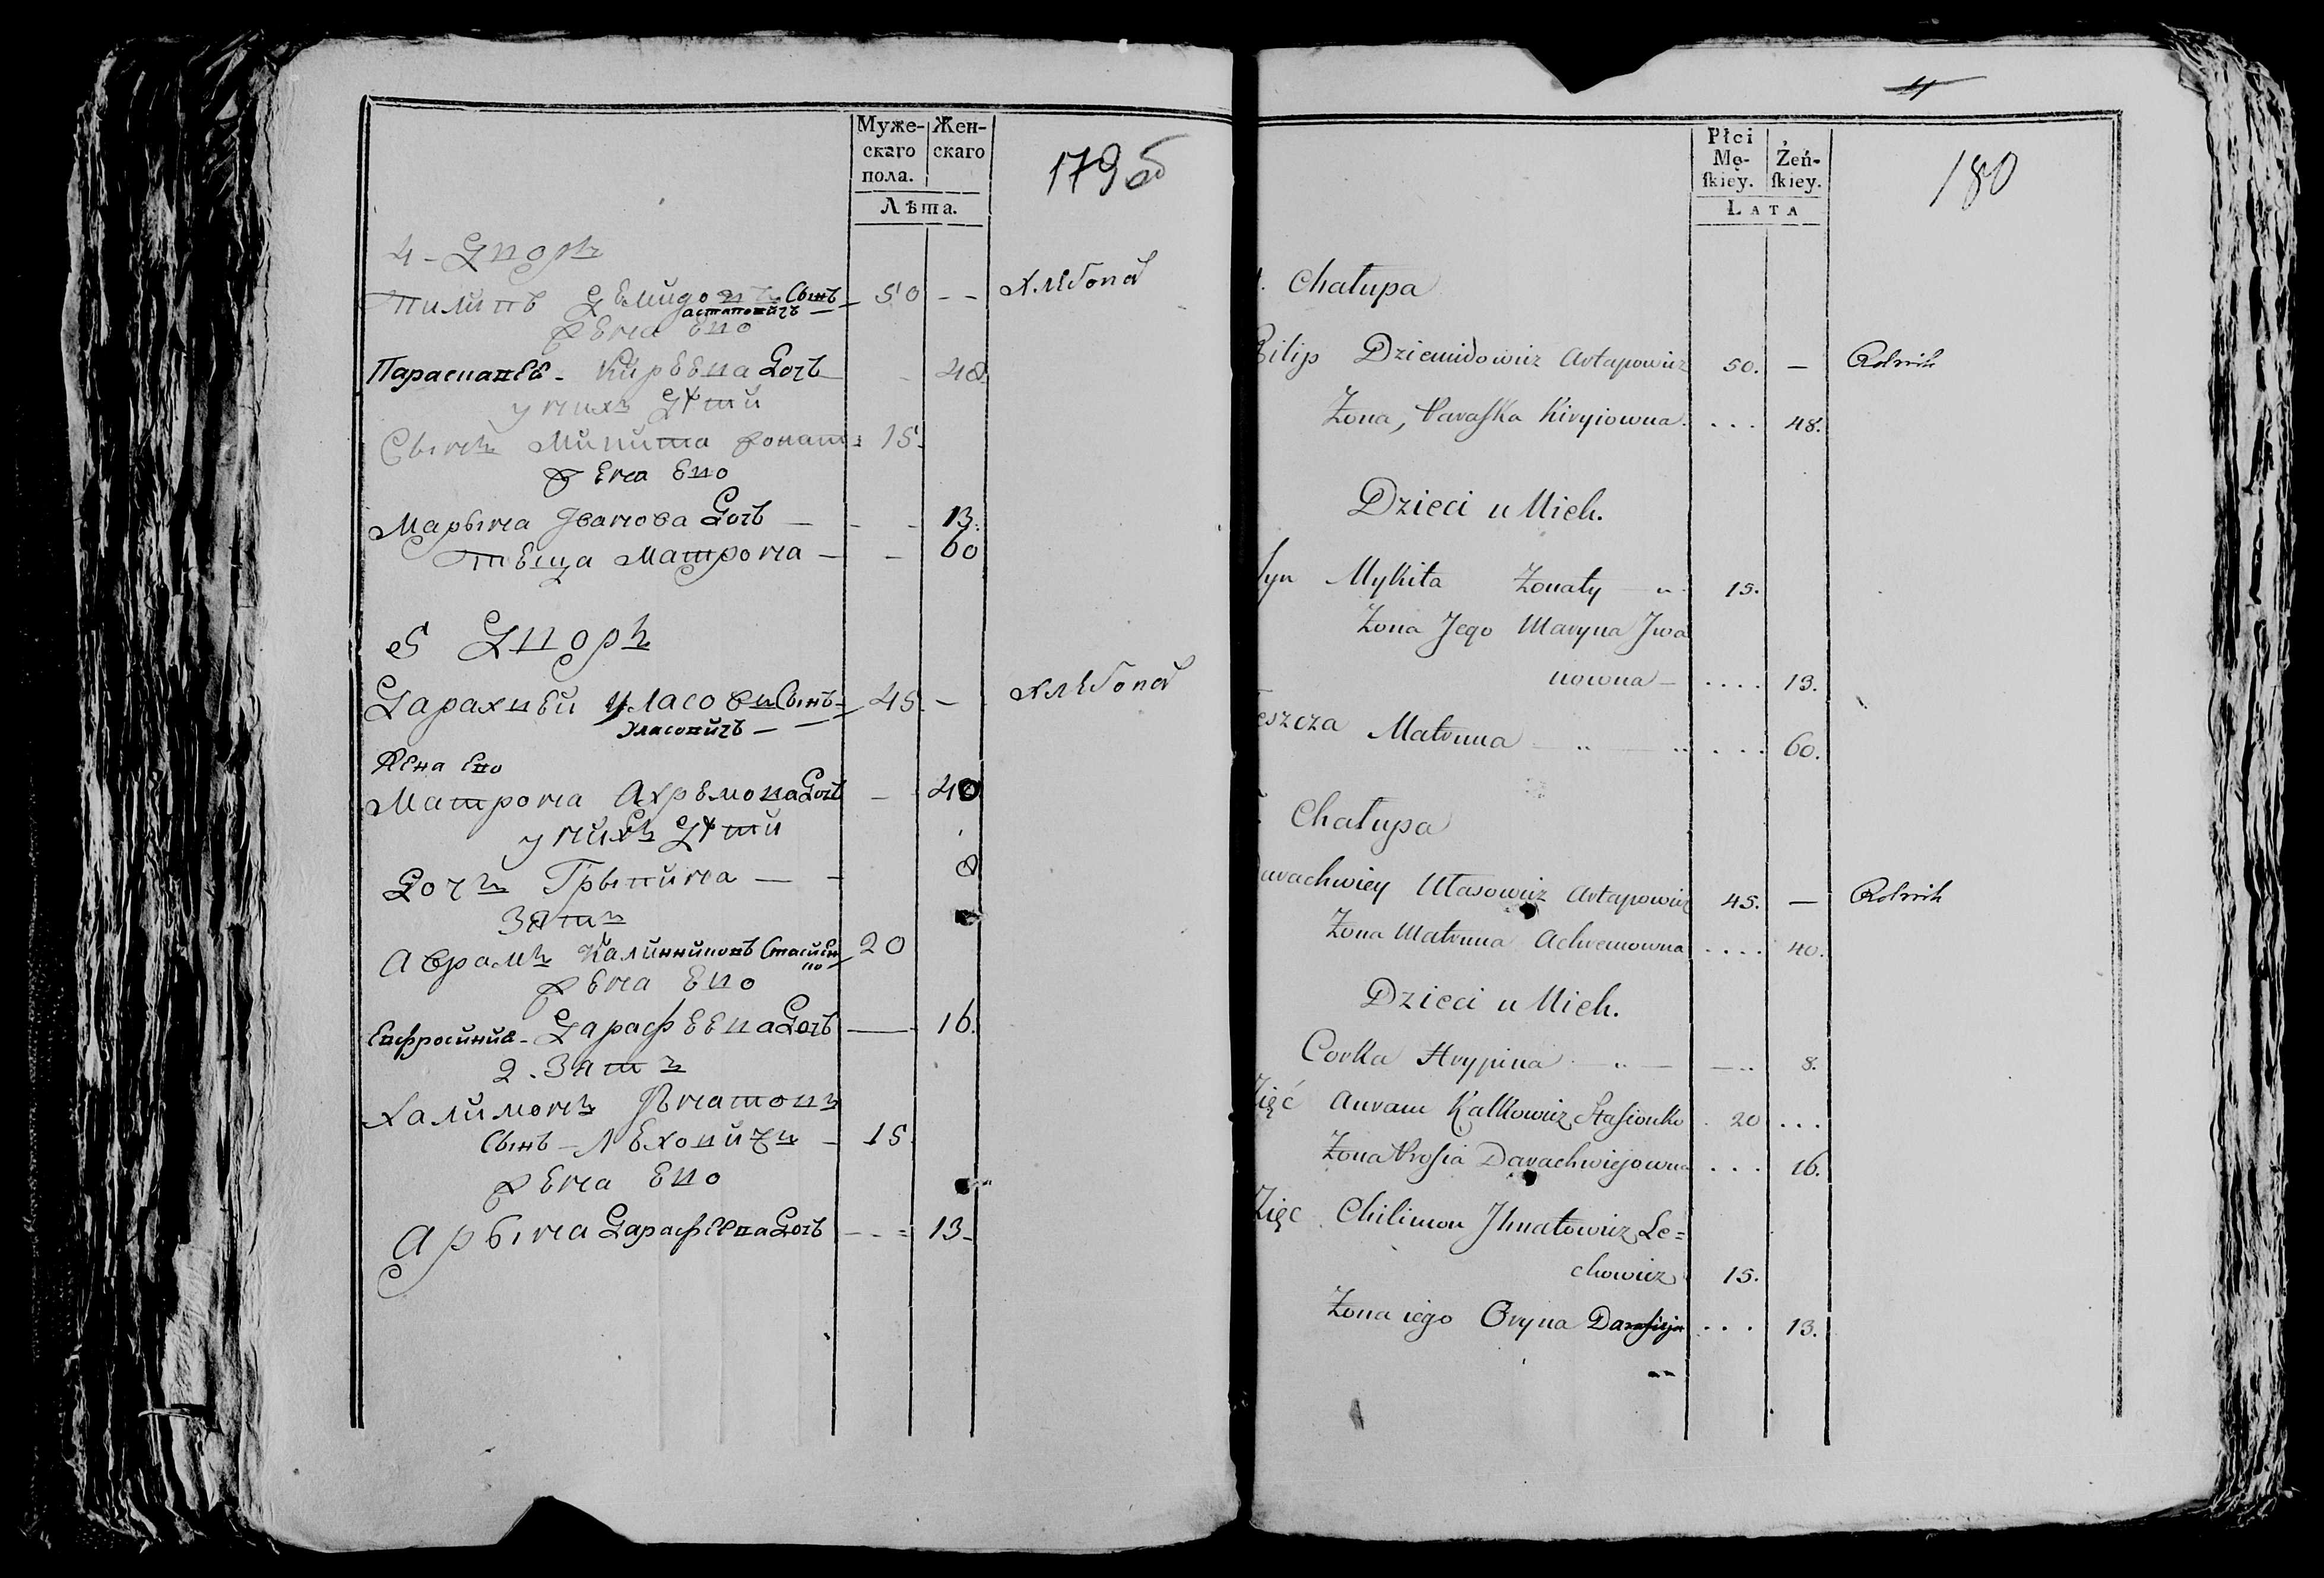 Муже-
скаго
пола.
Жен-
скаго
Лѣта.
179 об
4 - Дворъ
Пилипъ Демидовъ Сынъ 50 - - Хлѣбопа
Астаповичъ
Жена Ево
Парасковея - Кирѣевна Дочь - 48.
у нихъ дѣти
Сынъ Микита женат: 15.
Жена Ево
Марына Иванова Дочь - - - 13.
Теща Матрона - - 60
5 Дворъ
Дарахвей Уласовъ Сынъ 45. - Хлѣбопа
Уласовичъ -
Жена Ево
Матрона Ахремова Дочь - 40
у нихъ дѣти
Дочъ Грыпина - - 8
Зять
Аврамъ Калинниковъ Стасиен
ко 20
Жена Ево
Евфросиния - Дарафеевна Дочь - 16.
2. Зять
Халимонъ Игнатовъ
Сынъ - Лехович - 15
Жена Ево
Арына Дарафеевна Дочь - - = 13-
4
Płci
Mę-
ſkiey.
Żeń-
ſkiey.
LATA
180
Chałupa
Pilip Dziemidowicz Astapowicz 50. — Rolnik
Żona, Paraſka Kiryiowna. . . . 48.
Dzieci u Nich.
Syn Mykita Żonaty — „ 15.
Żona Jego Maryna Jwa
nowna — . . . . 13.
Teszcza Matruna — „ — „ . . . 60.
Chałupa
Darachwiey Ułasowicz Astapowicz 45. — Rolnik
Żona Matruna Achremowna . . . . 40.
Dzieci u Nich.
Corka Hrypina — „ — — .. 8.
Zięć Auram Kalkowicz Staſionko . 20 . . .
Żona Proſia Darachwiejowna . . . 16.
Zięc Chilimon Jhnatowicz Le=
chowicz 15.
Żona iego Oryna Darafieja . . . 13.